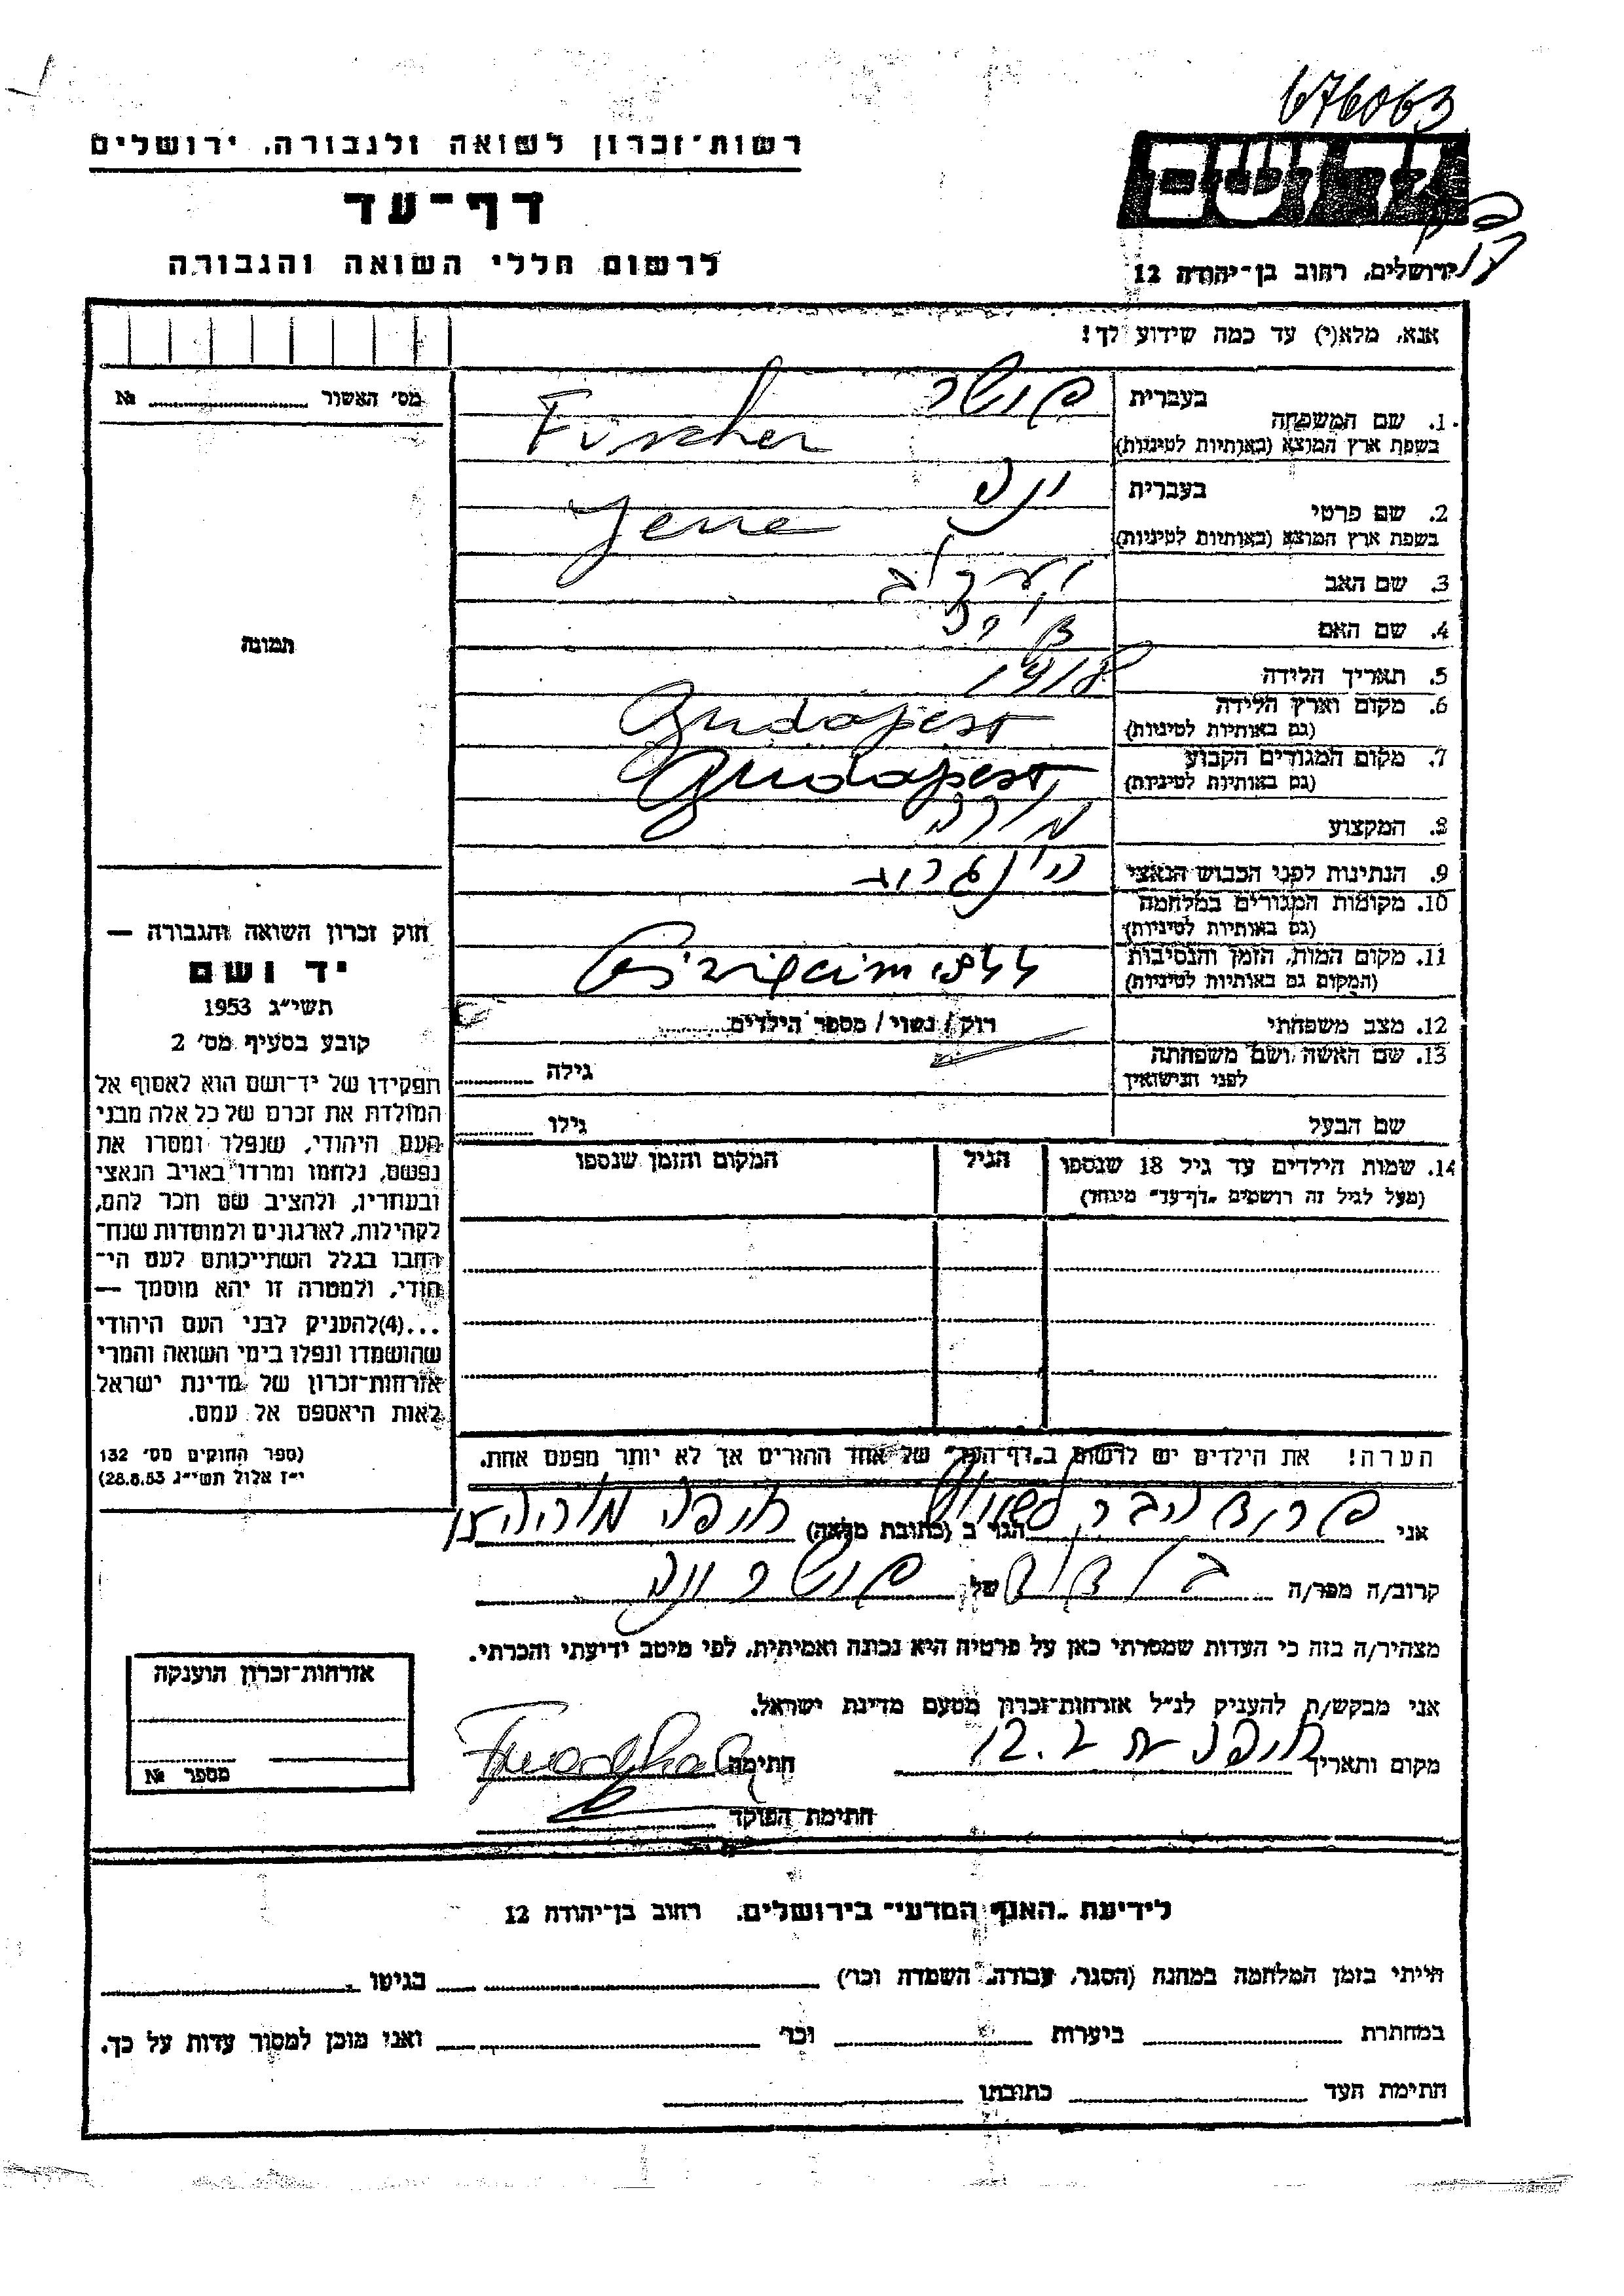 676063
רשות־זכרון לשואה ולגבורה, ירושלים
יד ושם
דף־עד
לרשום חללי השואה והגבורה
ירושלים, רחוב בן־יהודה 12
אנא, מלא(י) עד כמה שידוע לך!
מס׳ האשור № 
1. שם המשפחה
בעברית פושר
בשפת ארץ המוצא (באותיות לטיניות) Fuscher
2. שם פרטי
בעברית ינה
בשפת ארץ המוצא (באותיות לטיניות) Jene
3. שם האב יעקב
4. שם האם
5. תאריך הלידה 1918
6. מקום וארץ הלידה
(גם באותיות לטיניות) Budapest
7. מקום המגורים הקבוע
(גם באותיות לטיניות) Budapest
8. המקצוע מורה
9. הנתינות לפני הכבוש הנאצי
10. מקומות המגורים במלחמה
(גם באותיות לטיניות)
11. מקום המות, הזמן והנסיבות
(המקום גם באותיות לטיניות)
12. מצב משפחתי רוק / נשוי / מספר הילדים
13. שם האשה ושם משפחתה
לפני הנישואין גילה
שם הבעל גילו
14. שמות הילדים עד גיל 18 שנספו הגיל המקום והזמן שנספו
(מעל לגיל זה רושמים „דף־עד״ מיוחד)
הערה! את הילדים יש לרשום ב„דף־העד״ של אחד ההורים אך לא יותר מפעם אחת.
תמונה
חוק זכרון השואה והגבורה —
יד ושם
תשי״ג 1953
קובע בסעיף מס׳ 2
תפקידו של יד־ושם הוא לאסוף אל
המולדת את זכרם של כל אלה מבני
העם היהודי, שנפלו ומסרו את
נפשם, נלחמו ומרדו באויב הנאצי
ובעוזריו, ולהציב שם וזכר להם,
לקהילות, לארגונים ולמוסדות שנח־
רבו בגלל השתייכותם לעם הי־
הודי, ולמטרה זו יהא מוסמך —
...(4)להעניק לבני העם היהודי
שהושמדו ונפלו בימי השואה והמרי
אזרחות־זכרון של מדינת ישראל
לאות היאספם אל עמם.
(ספר החוקים מס׳ 132
י״ז אלול תשי״ג 28.8.53)
אני הגר ב (כתובת מלאה) חיפה
קרוב/ה מפר/ה של פושר ינה
מצהיר/ה בזה כי העדות שמסרתי כאן על פרטיה היא נכונה ואמיתית, לפי מיטב ידיעתי והכרתי.
אני מבקש/ת להעניק לנ״ל אזרחות־זכרון מטעם מדינת ישראל.
מקום ותאריך חיפה חתימה
חתימת הפוקד
אזרחות־זכרון הוענקה
מספר №
לידיעת „האגף המדעי״ בירושלים, רחוב בן־יהודה 12
הייתי בזמן המלחמה במחנה (הסגר, עבודה, השמדה וכו׳) בגיטו
במחתרת ביערות וכו׳ ואני מוכן למסור עדות על כך.
חתימת העד כתובתו